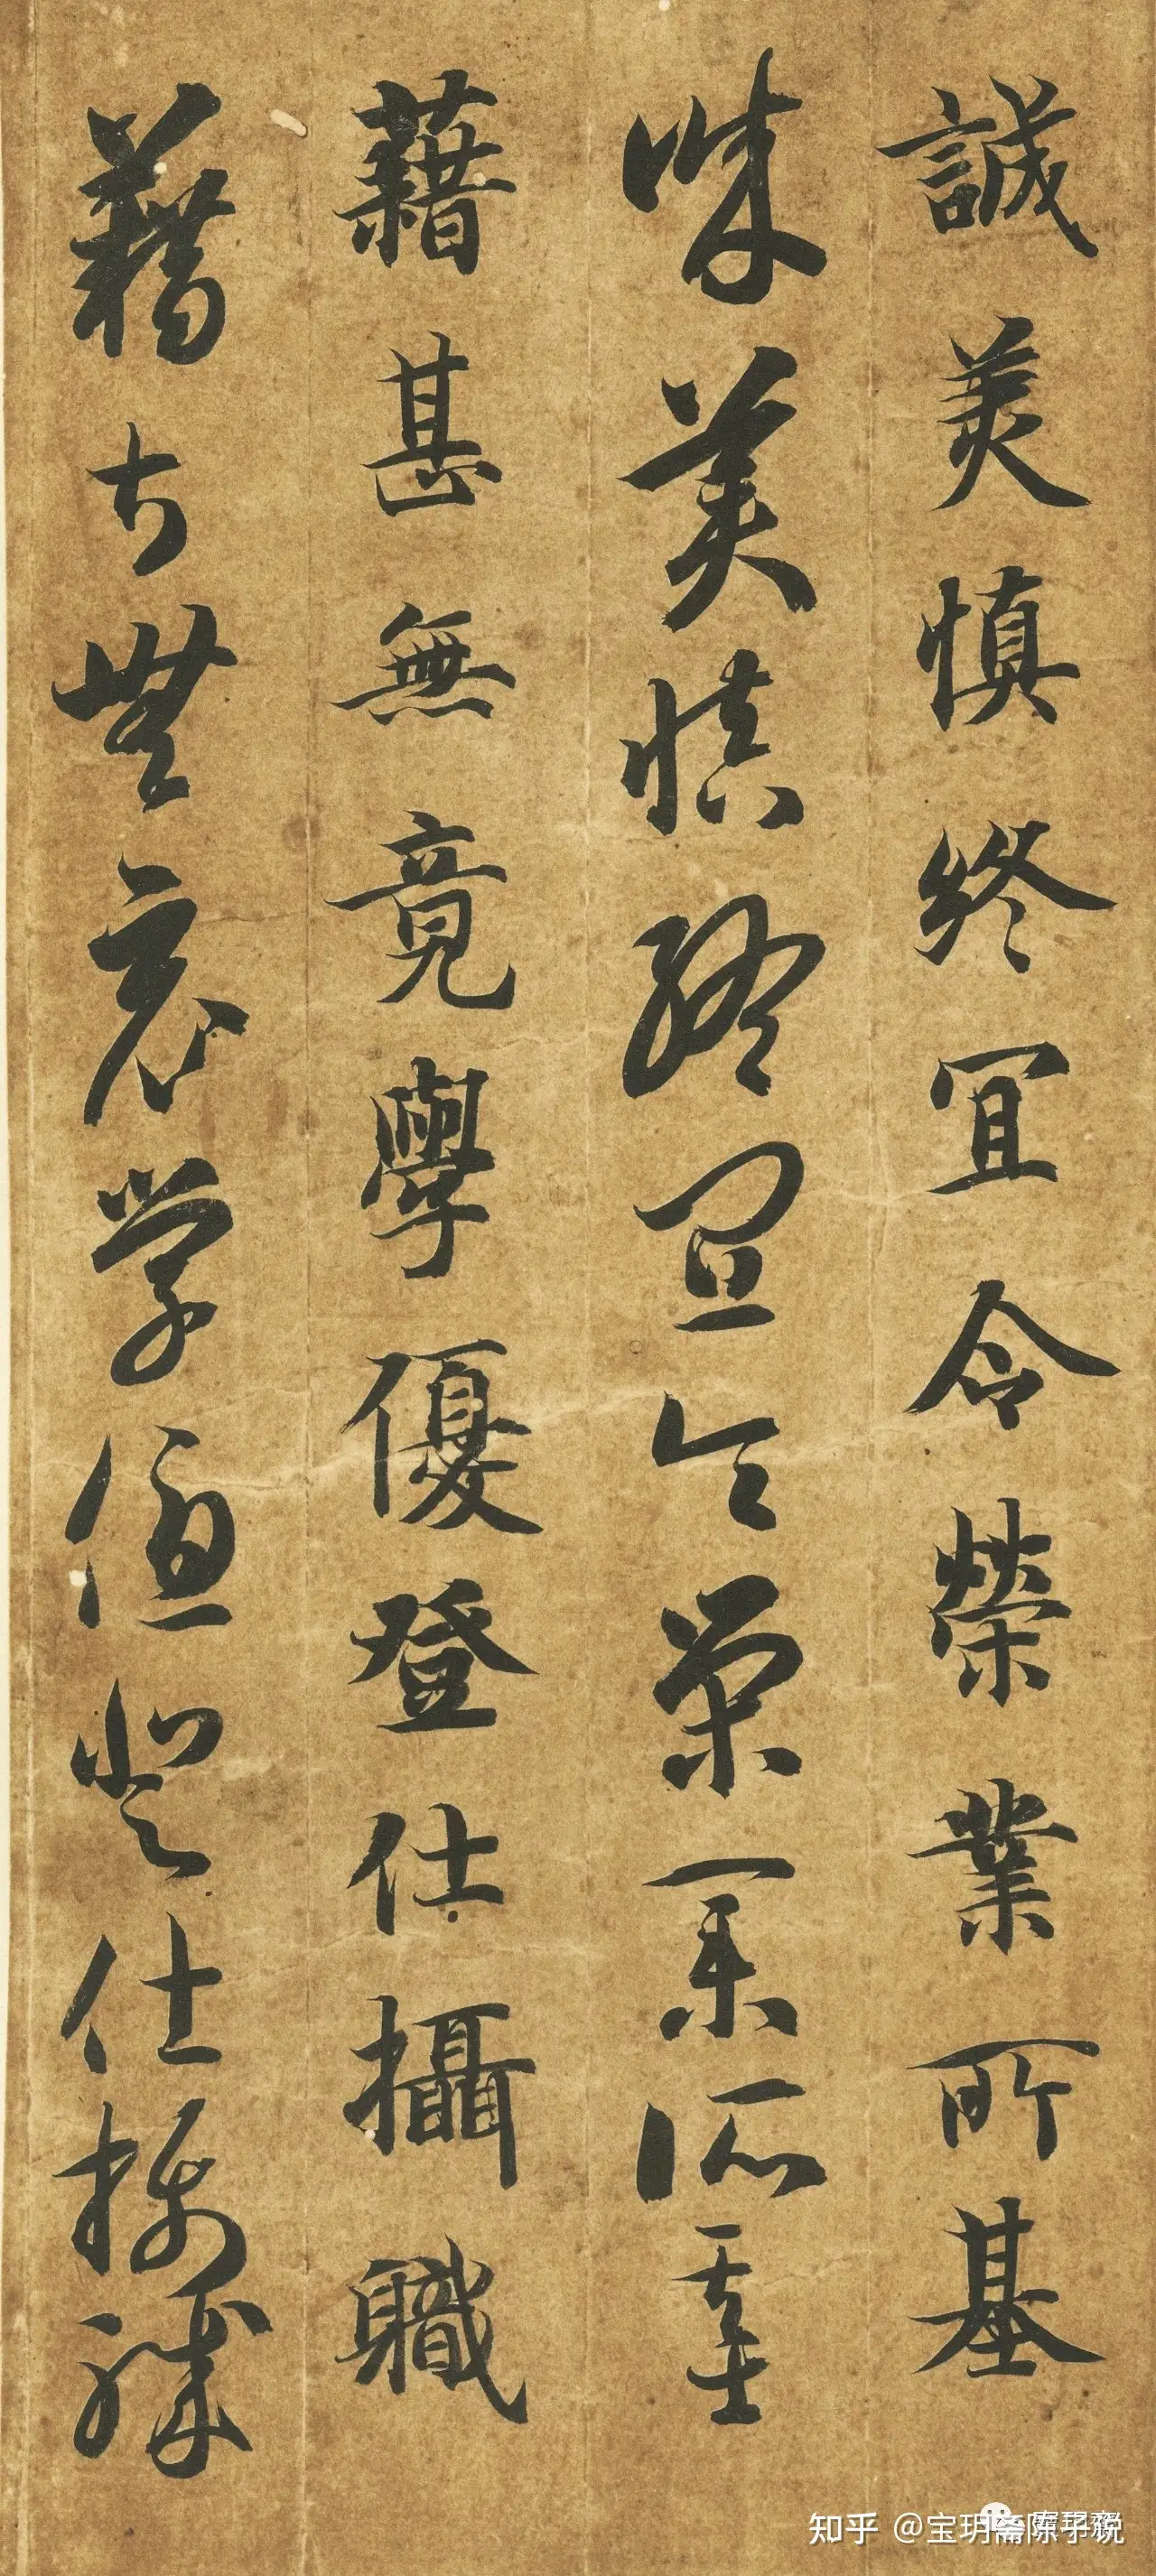 誠美慎終宜令榮業所基
誠美慎終宜令榮業所基
藉甚無竟學優登仕攝職
藉甚無竟學優登仕攝職
知乎 @宝玥斋陈子说